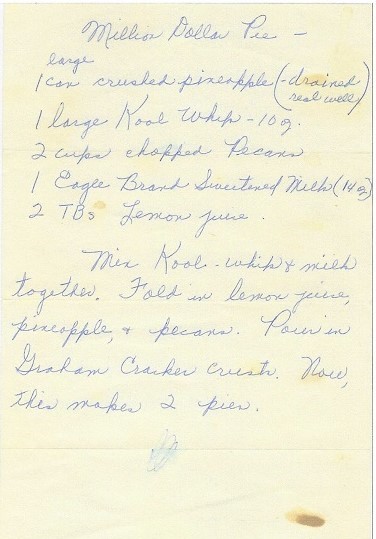 Million Dollar Pie -
large
1 can crushed pineapple (-drained
real well)
1 large Kool Whip - 10 oz.
2 cups chopped Pecans
1 Eagle Brand Sweetened Milk (14 oz)
2 TBs Lemon juice.
Mix Kool-whip & milk
together. Fold in lemon juice,
pineapple, & pecans. Pour in
Graham Cracker crusts. Now,
this makes 2 pies.